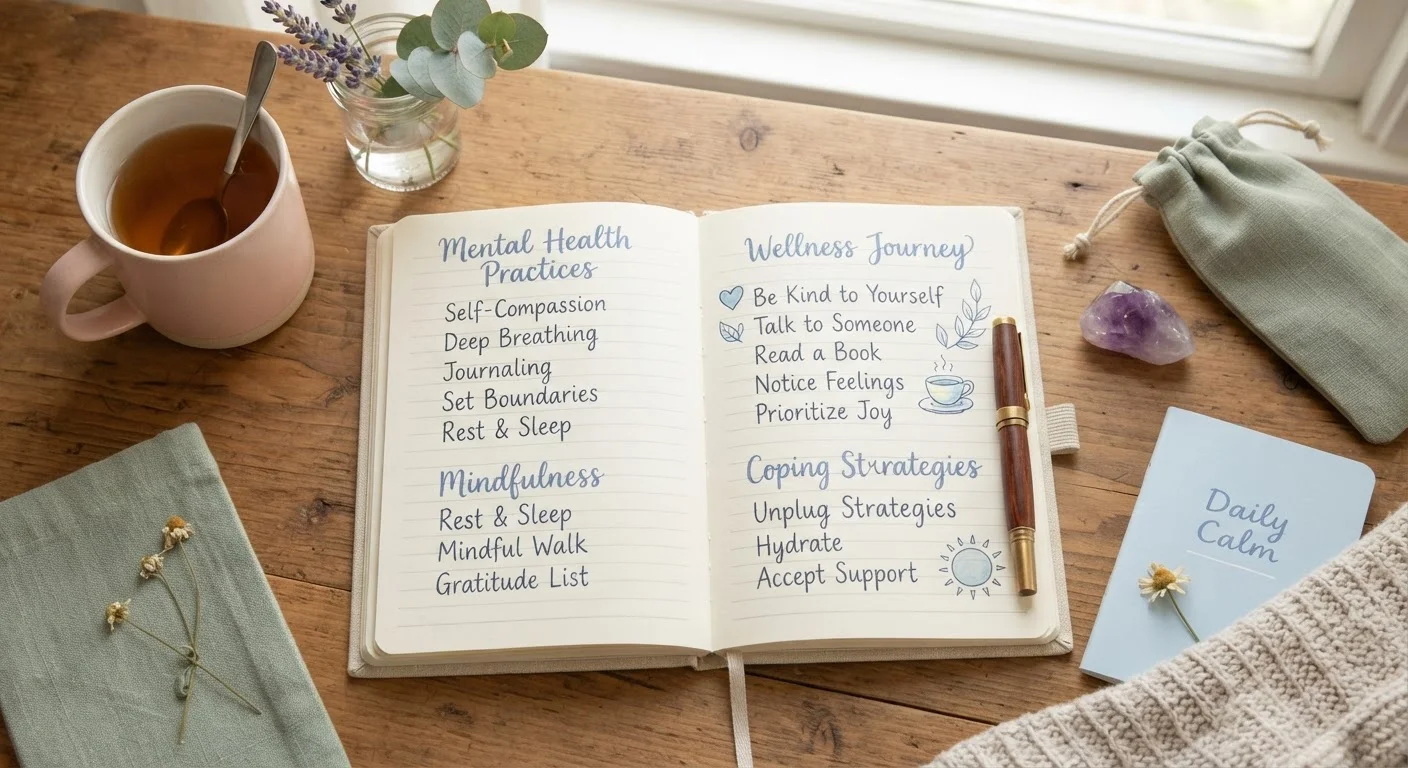 Mental Health
Practices
Self-Compassion
Deep Breathing
Journaling
Set Boundaries
Rest & Sleep
Mindfulness
Rest & Sleep
Mindful Walk
Gratitude List
Wellness Journey
Be Kind to Yourself
Talk to Someone
Read a Book
Notice Feelings
Prioritize Joy
Coping Strategies
Unplug Strategies
Hydrate
Accept Support
Daily
Calm